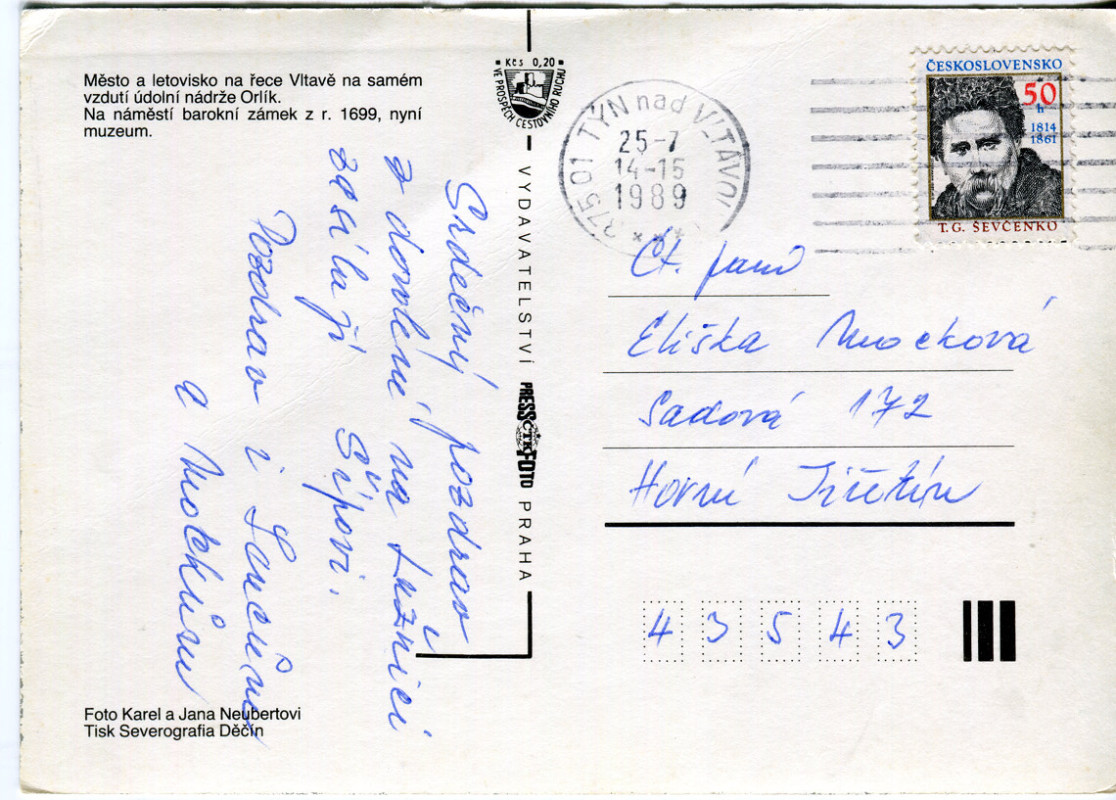 Město a letovisko na řece Vltavě na samém
vzdutí údolní nádrže Orlík.
Na náměstí barokní zámek z r. 1699, nyní
muzeum.
Srdečný pozdrav
z dovolené na Lužnici
zasílají Šípovi.
Pozdrav i
a
Foto Karel a Jana Neubertovi
Tisk Severografia Děčín
Kčs 0,20
VE PROSPĚCH CESTOVNÍHO RUCHU
VYDAVATELSTVÍ PRESSFOTO PRAHA
ČTK
375 01 TÝN nad VLTAVOU
25-7
14-15
1989
ČESKOSLOVENSKO
50
h
1814
1861
T. G. ŠEVČENKO
Ct. paní
Eliška Mocková
Sadová 172
Horní Jiřetín
4 3 5 4 3